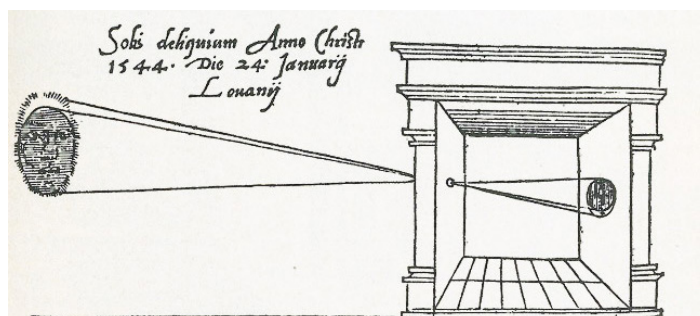 Solis deliquium Anno Christi
1544. Die 24. Januarij
Louanij